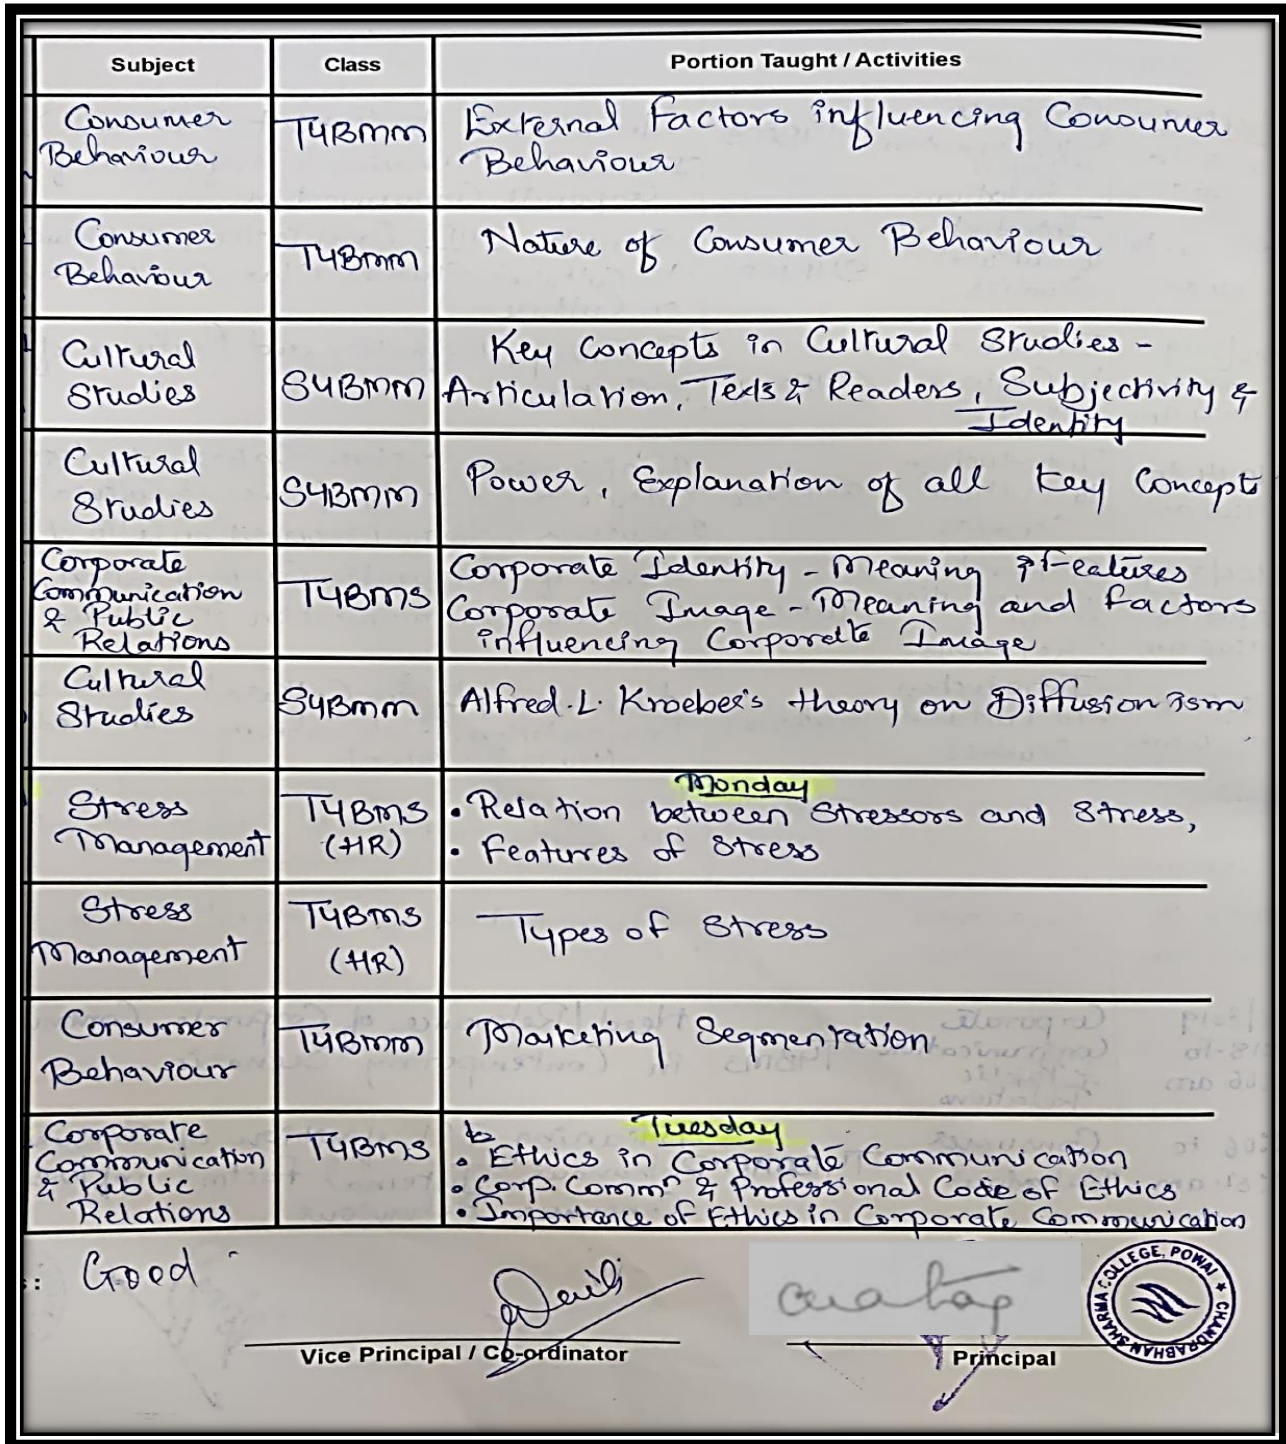 Subject Class Portion Taught / Activities
Consumer Behaviour TYBMM External Factors influencing Consumer
Behaviour
Consumer Behaviour TYBMM Nature of Consumer Behaviour
Cultural Studies SYBMM Key Concepts in Cultural Studies -
Articulation, Texts & Readers, Subjectivity &
Identity
Cultural Studies SYBMM Power, Explanation of all key Concepts
Corporate Communication & Public Relations TYBMS Corporate Identity - Meaning & Features
Corporate Image - Meaning and factors
influencing Corporate Image
Cultural Studies SYBMM Alfred. L. Kroeber's theory on Diffusionism
Monday
Stress Management TYBMS (HR) • Relation between Stressors and Stress,
• Features of Stress
Stress Management TYBMS (HR) Types of Stress
Consumer Behaviour TYBMM Marketing Segmentation
Tuesday
Corporate Communication & Public Relations TYBMS • Ethics in Corporate Communication
• Corp. Commn & Professional Code of Ethics
• Importance of Ethics in Corporate Communication
: Good
Vice Principal / Co-ordinator
Principal
CHANDRABHAN SHARMA COLLEGE, POWAI